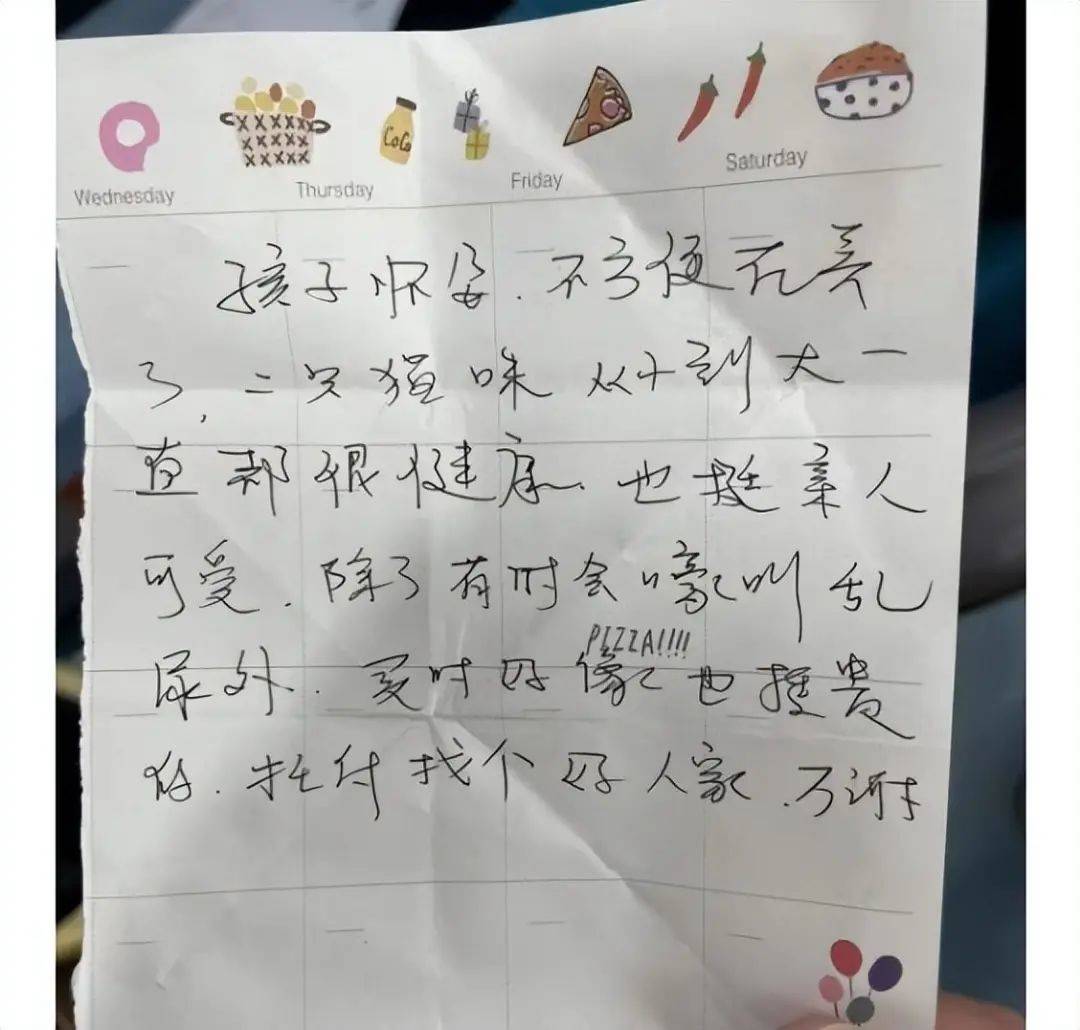 CoCo
Wednesday Thursday Friday Saturday
孩子怀孕.不方便在养
了,二只猫咪从小到大一
直都很健康.也挺亲人
可爱.除了有时会嚎叫乱
PIZZA!!!!
尿外.买时好像也挺贵
的.托付找个好人家.万谢